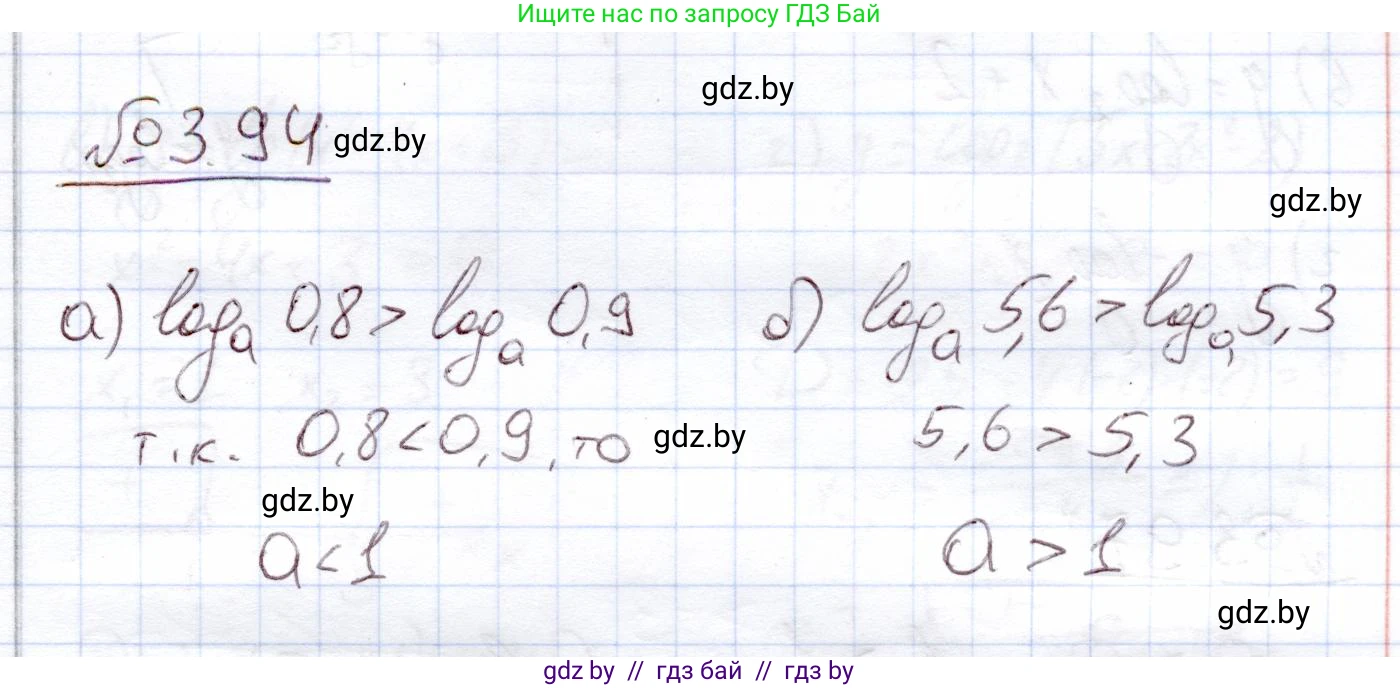 Ищите нас по запросу ГДЗ Бай
gdz.by
№ 3.94 gdz.by
gdz.by
а) logₐ 0,8 > logₐ 0,9
т.к. 0,8 < 0,9, то gdz.by
gdz.by
a < 1
б) logₐ 5,6 > logₐ 5,3
5,6 > 5,3
a > 1
gdz.by
gdz.by // гдз бай // гдз by